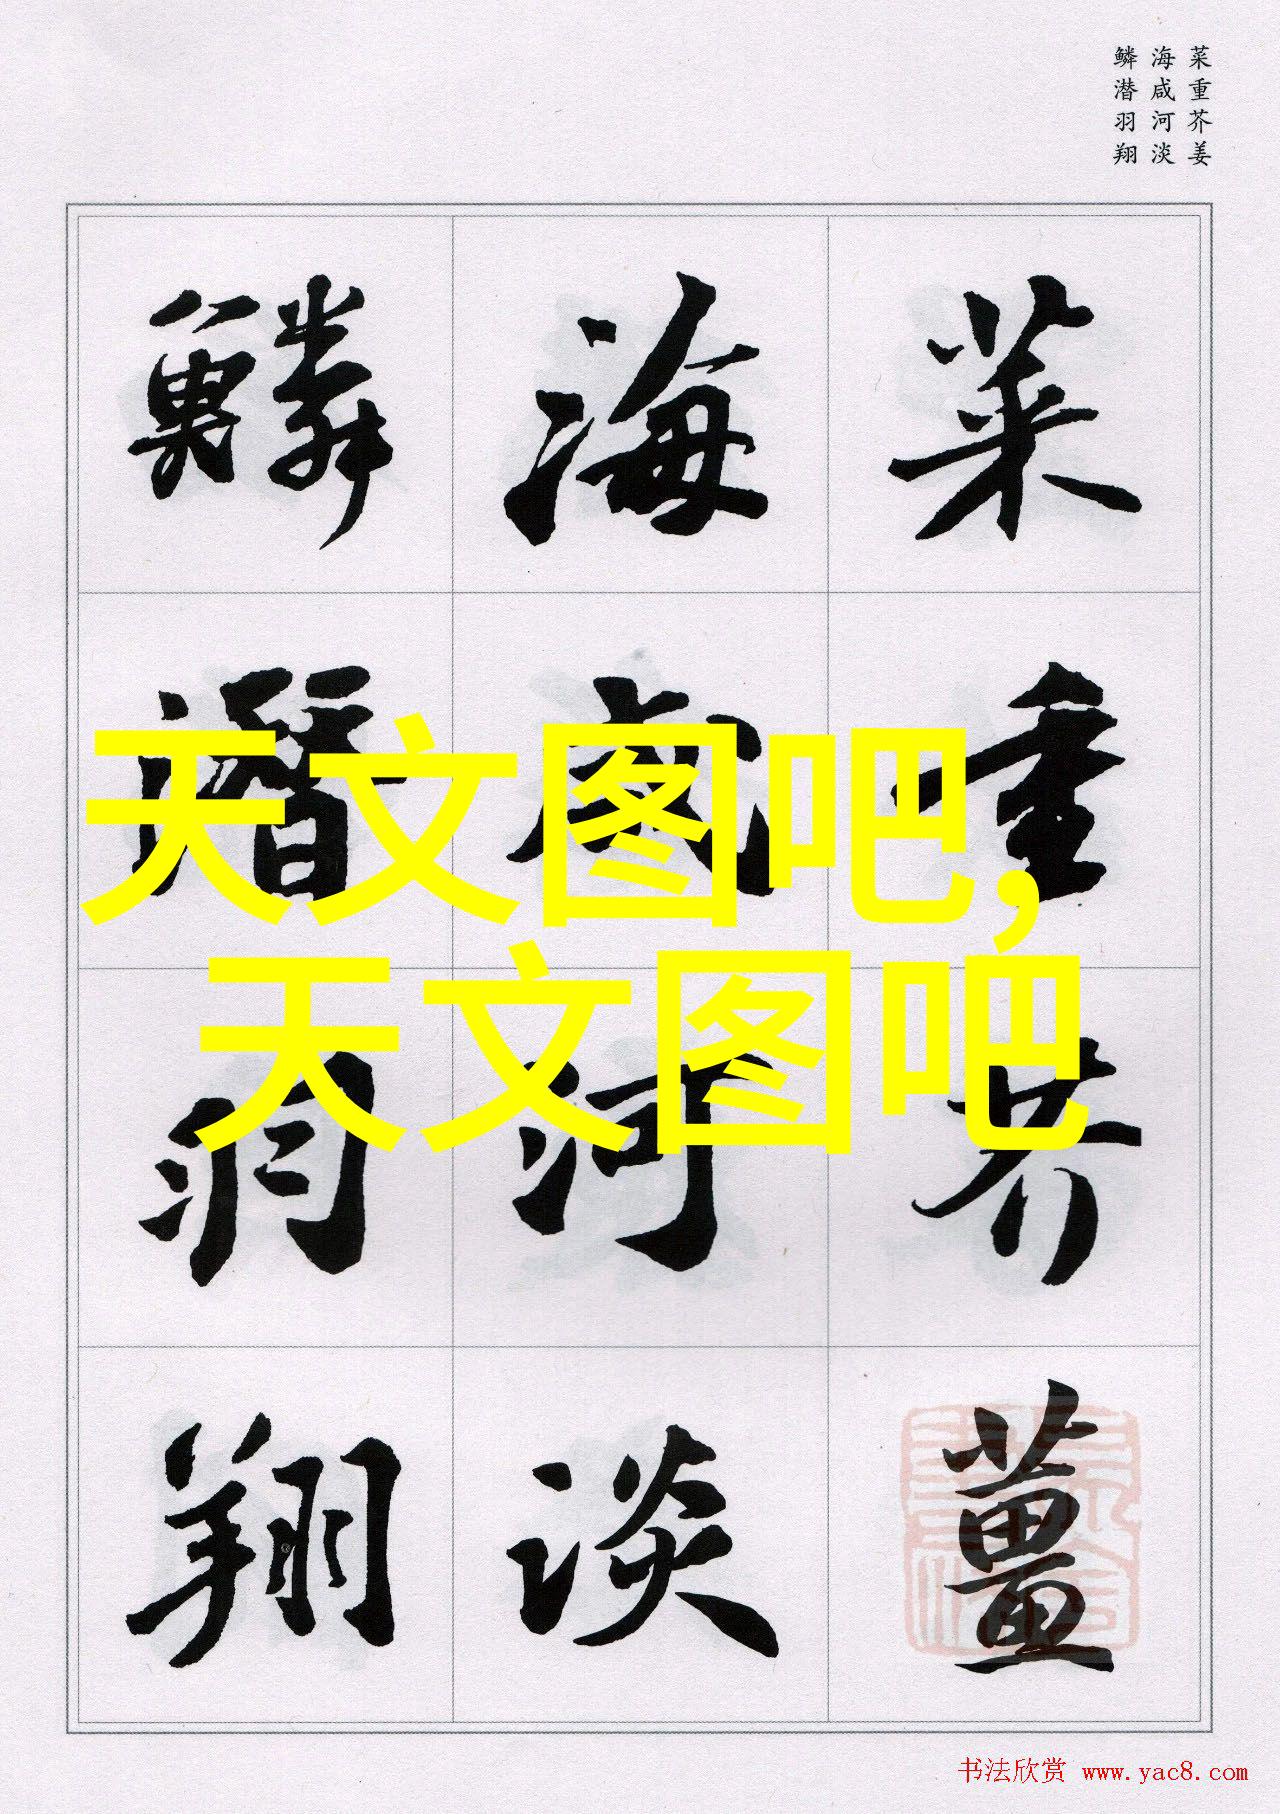 菜重芥姜
海咸河淡
鳞潜羽翔
菜重芥薑
海咸河淡
鱗潛羽翔
天文图吧,
天文图吧
书法欣赏 www.yac8.com